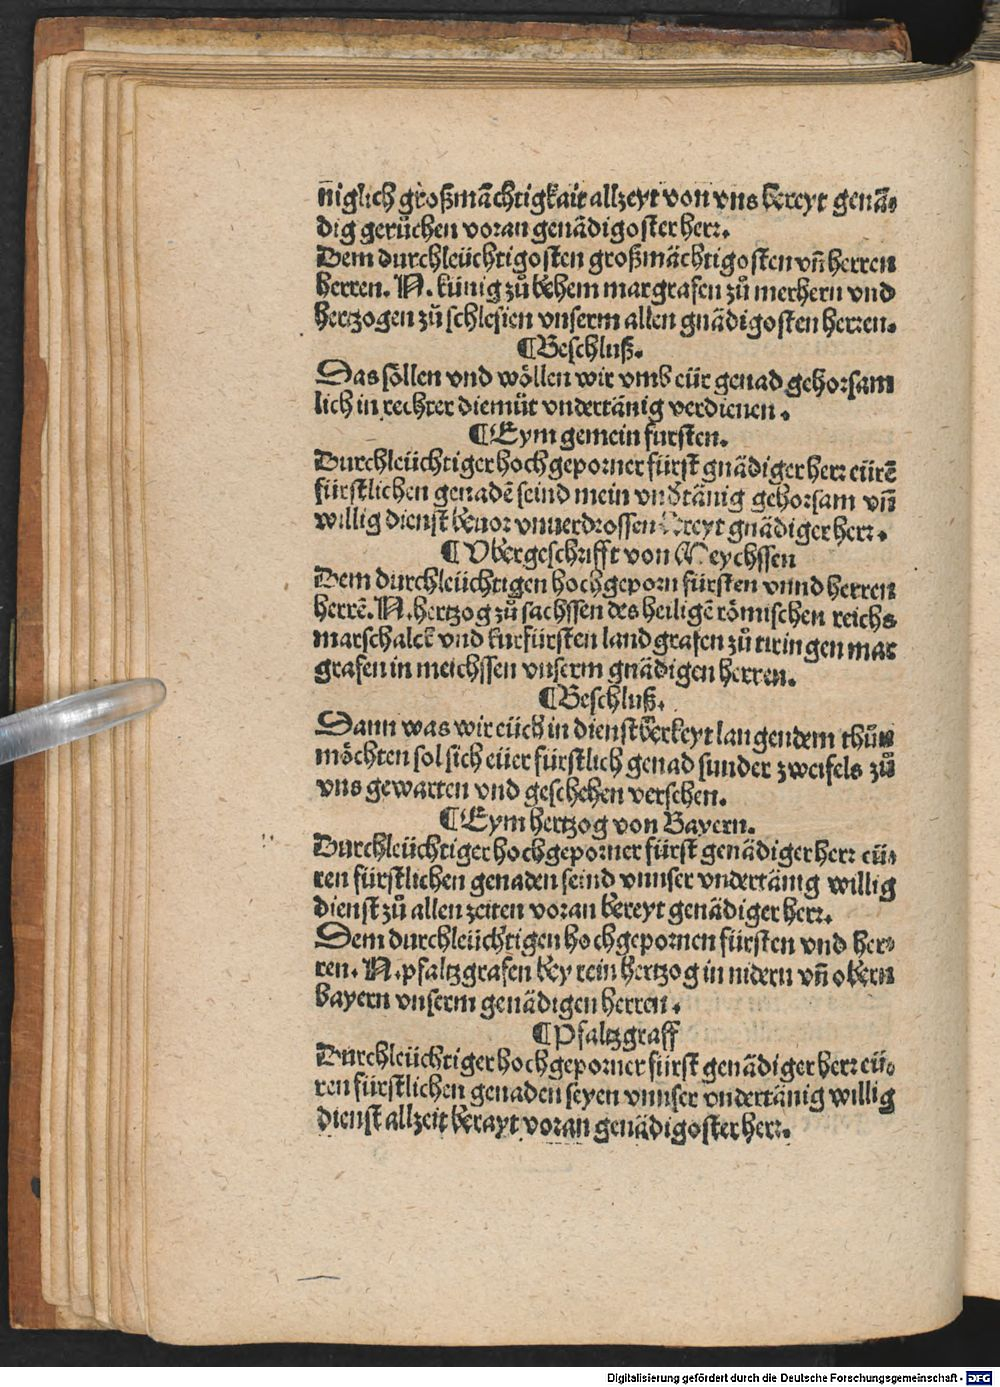 n̄iglich großmåchtigkait allzeyt von vns bereyt genå-
dig gerůchen voran genådigoster herr.
Dem durchleüchtigosten großmåchtigosten vn̄ herren
herren. N. künig zů behem margrafen zů merhern vnd
hertzogen zů schlesien vnserm allen gnådigosten herren.
¶Beschluß.
Das söllen vnd wöllen wir vmb eür genad gehorsam
lich in rechter diemüt vndertånig verdienen.
¶Eym gemein fursten.
Durchleüchtiger hochgeporner fürst gnådiger herr eürē
fürstlichen genadē seind mein vnd̕tånig gehorsam vn̄
willig dienst beuor vnuerdrossen bereyt gnådiger herr.
¶Vbergeschrifft von Meychssen
Dem durchleüchtigen hochgeporn fürsten vnnd herren
herrē. N. hertzog zů sachssen des heiligē römischen reichs
marschalck vnd kurfürsten landgrafen zů türingen mar
grafen in meichssen vnserm gnådigen herren.
¶Beschluß.
Dann was wir eüch in dienstberkeyt langendem thůn
möchten sol sich eüer fürstlich genad sunder zweifels zů
vns gewarten vnd geschehen versehen.
¶Eym hertzog von Bayern.
Durchleüchtiger hochgeporner fürst genådiger herr eü-
ren fürstlichen genaden seind vnnser vndertånig willig
dienst zů allen zeiten voran bereyt genådiger herr.
Dem durchleüchtigen hochgepornen fürsten vnd her-
ren. N. pfaltzgrafen bey rein hertzog in nidern vn̄ obern
bayern vnserm genådigen herren.
¶Pfaltzgraff
Durchleüchtiger hochgeporner fürst genådiger herr eü-
ren fürstlichen genaden seyen vnnser vndertånig willig
dienst allzeit berayt voran genådigoster herr.
Digitalisierung gefördert durch die Deutsche Forschungsgemeinschaft - DFG